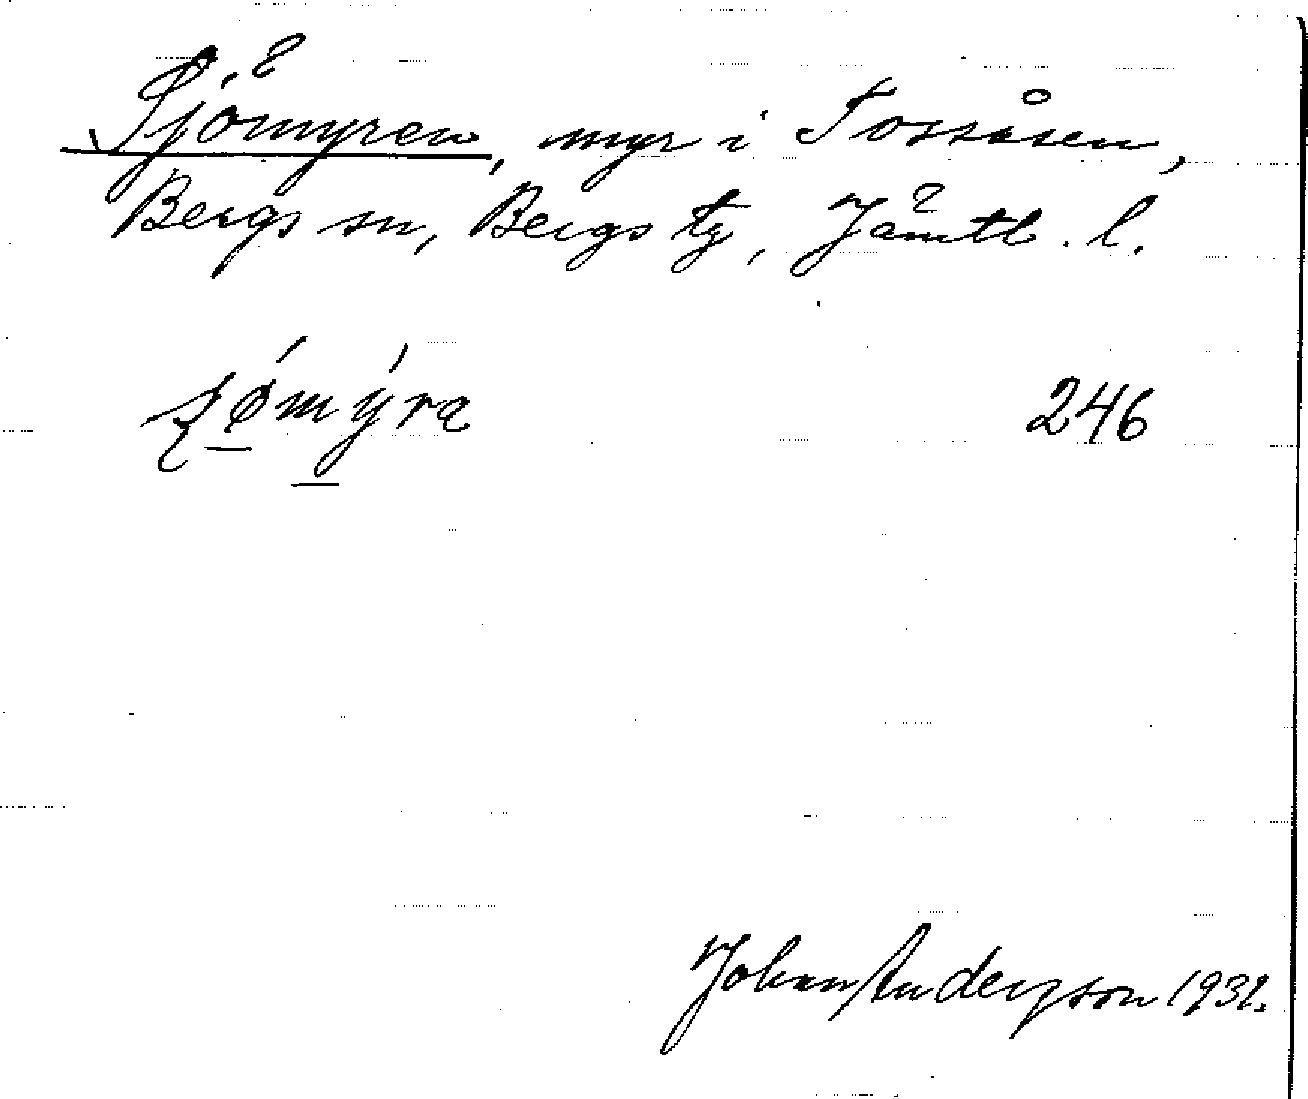 Sjömyren, myr i Tossåsen,
Bergs sn, Bergs tg, Jämtl. l.
246
Johan Anderson 1932.